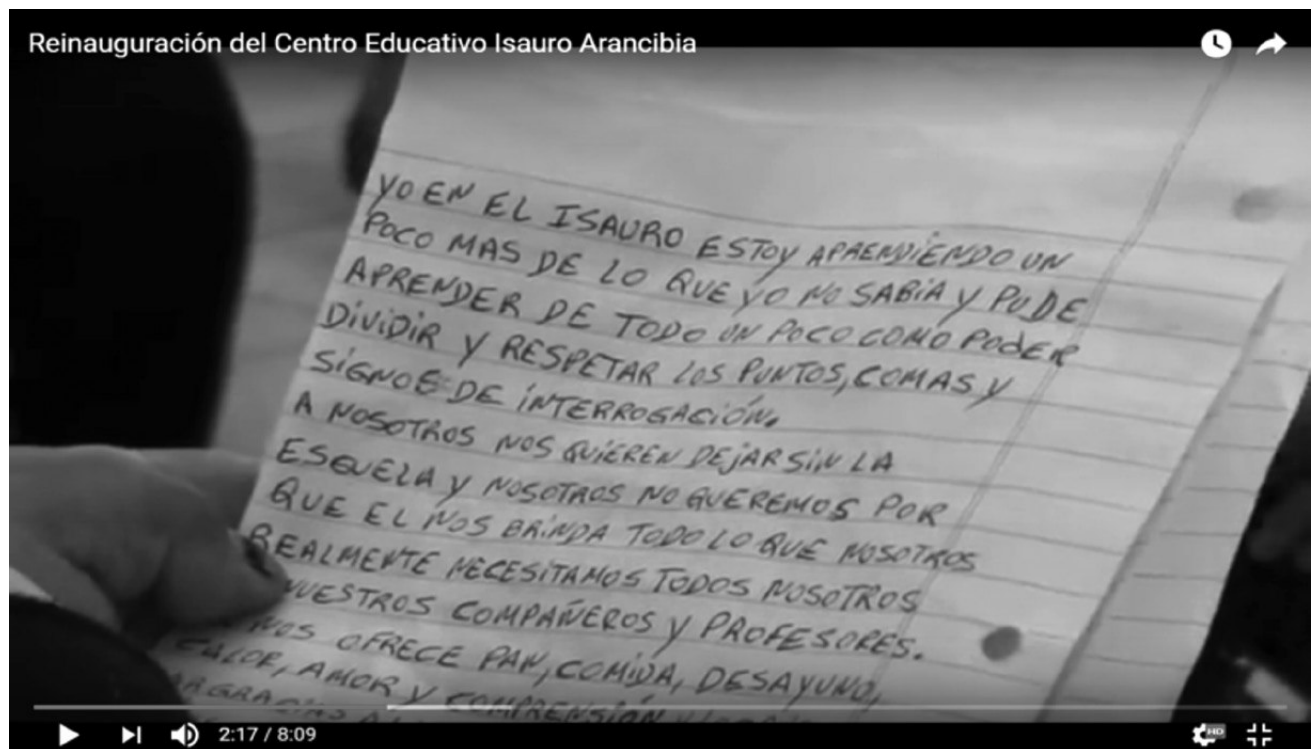 Reinauguración del Centro Educativo Isauro Arancibia
YO EN EL ISAURO ESTOY APRENDIENDO UN
POCO MAS DE LO QUE YO NO SABIA Y PUDE
APRENDER DE TODO UN POCO COMO PODER
DIVIDIR Y RESPETAR LOS PUNTOS, COMAS Y
SIGNOS DE INTERROGACIÓN.
A NOSOTROS NOS QUIEREN DEJAR SIN LA
ESQUELA Y NOSOTROS NO QUEREMOS POR
QUE EL NOS BRINDA TODO LO QUE NOSOTROS
REALMENTE NECESITAMOS TODOS NOSOTROS
NUESTROS COMPAÑEROS Y PROFESORES.
NOS OFRECE PAN, COMIDA, DESAYUNO,
CALOR, AMOR Y COMPRENSIÓN
2:17 / 8:09
HD